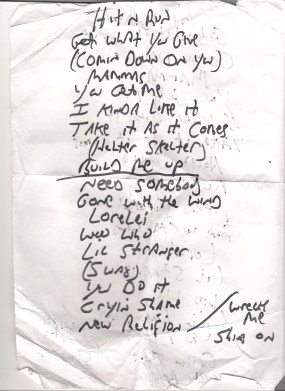 Hit n Run
Get what you Give
(Comin Down On you)
MAMMAS
you Owe me
I KINDA Like it
TAKE it As it Comes
(Helter Skelter)
BUILD Me up
Need Somebody
Gone with the WIND
LoreLei
Lil StrANger
(SWAY)
you Do it
Cryin Shame
New Religion / Wreck Me
Shine on